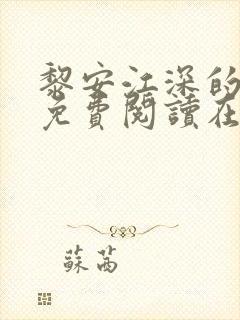 黎安江深的
免費閱讀在
蘇茜